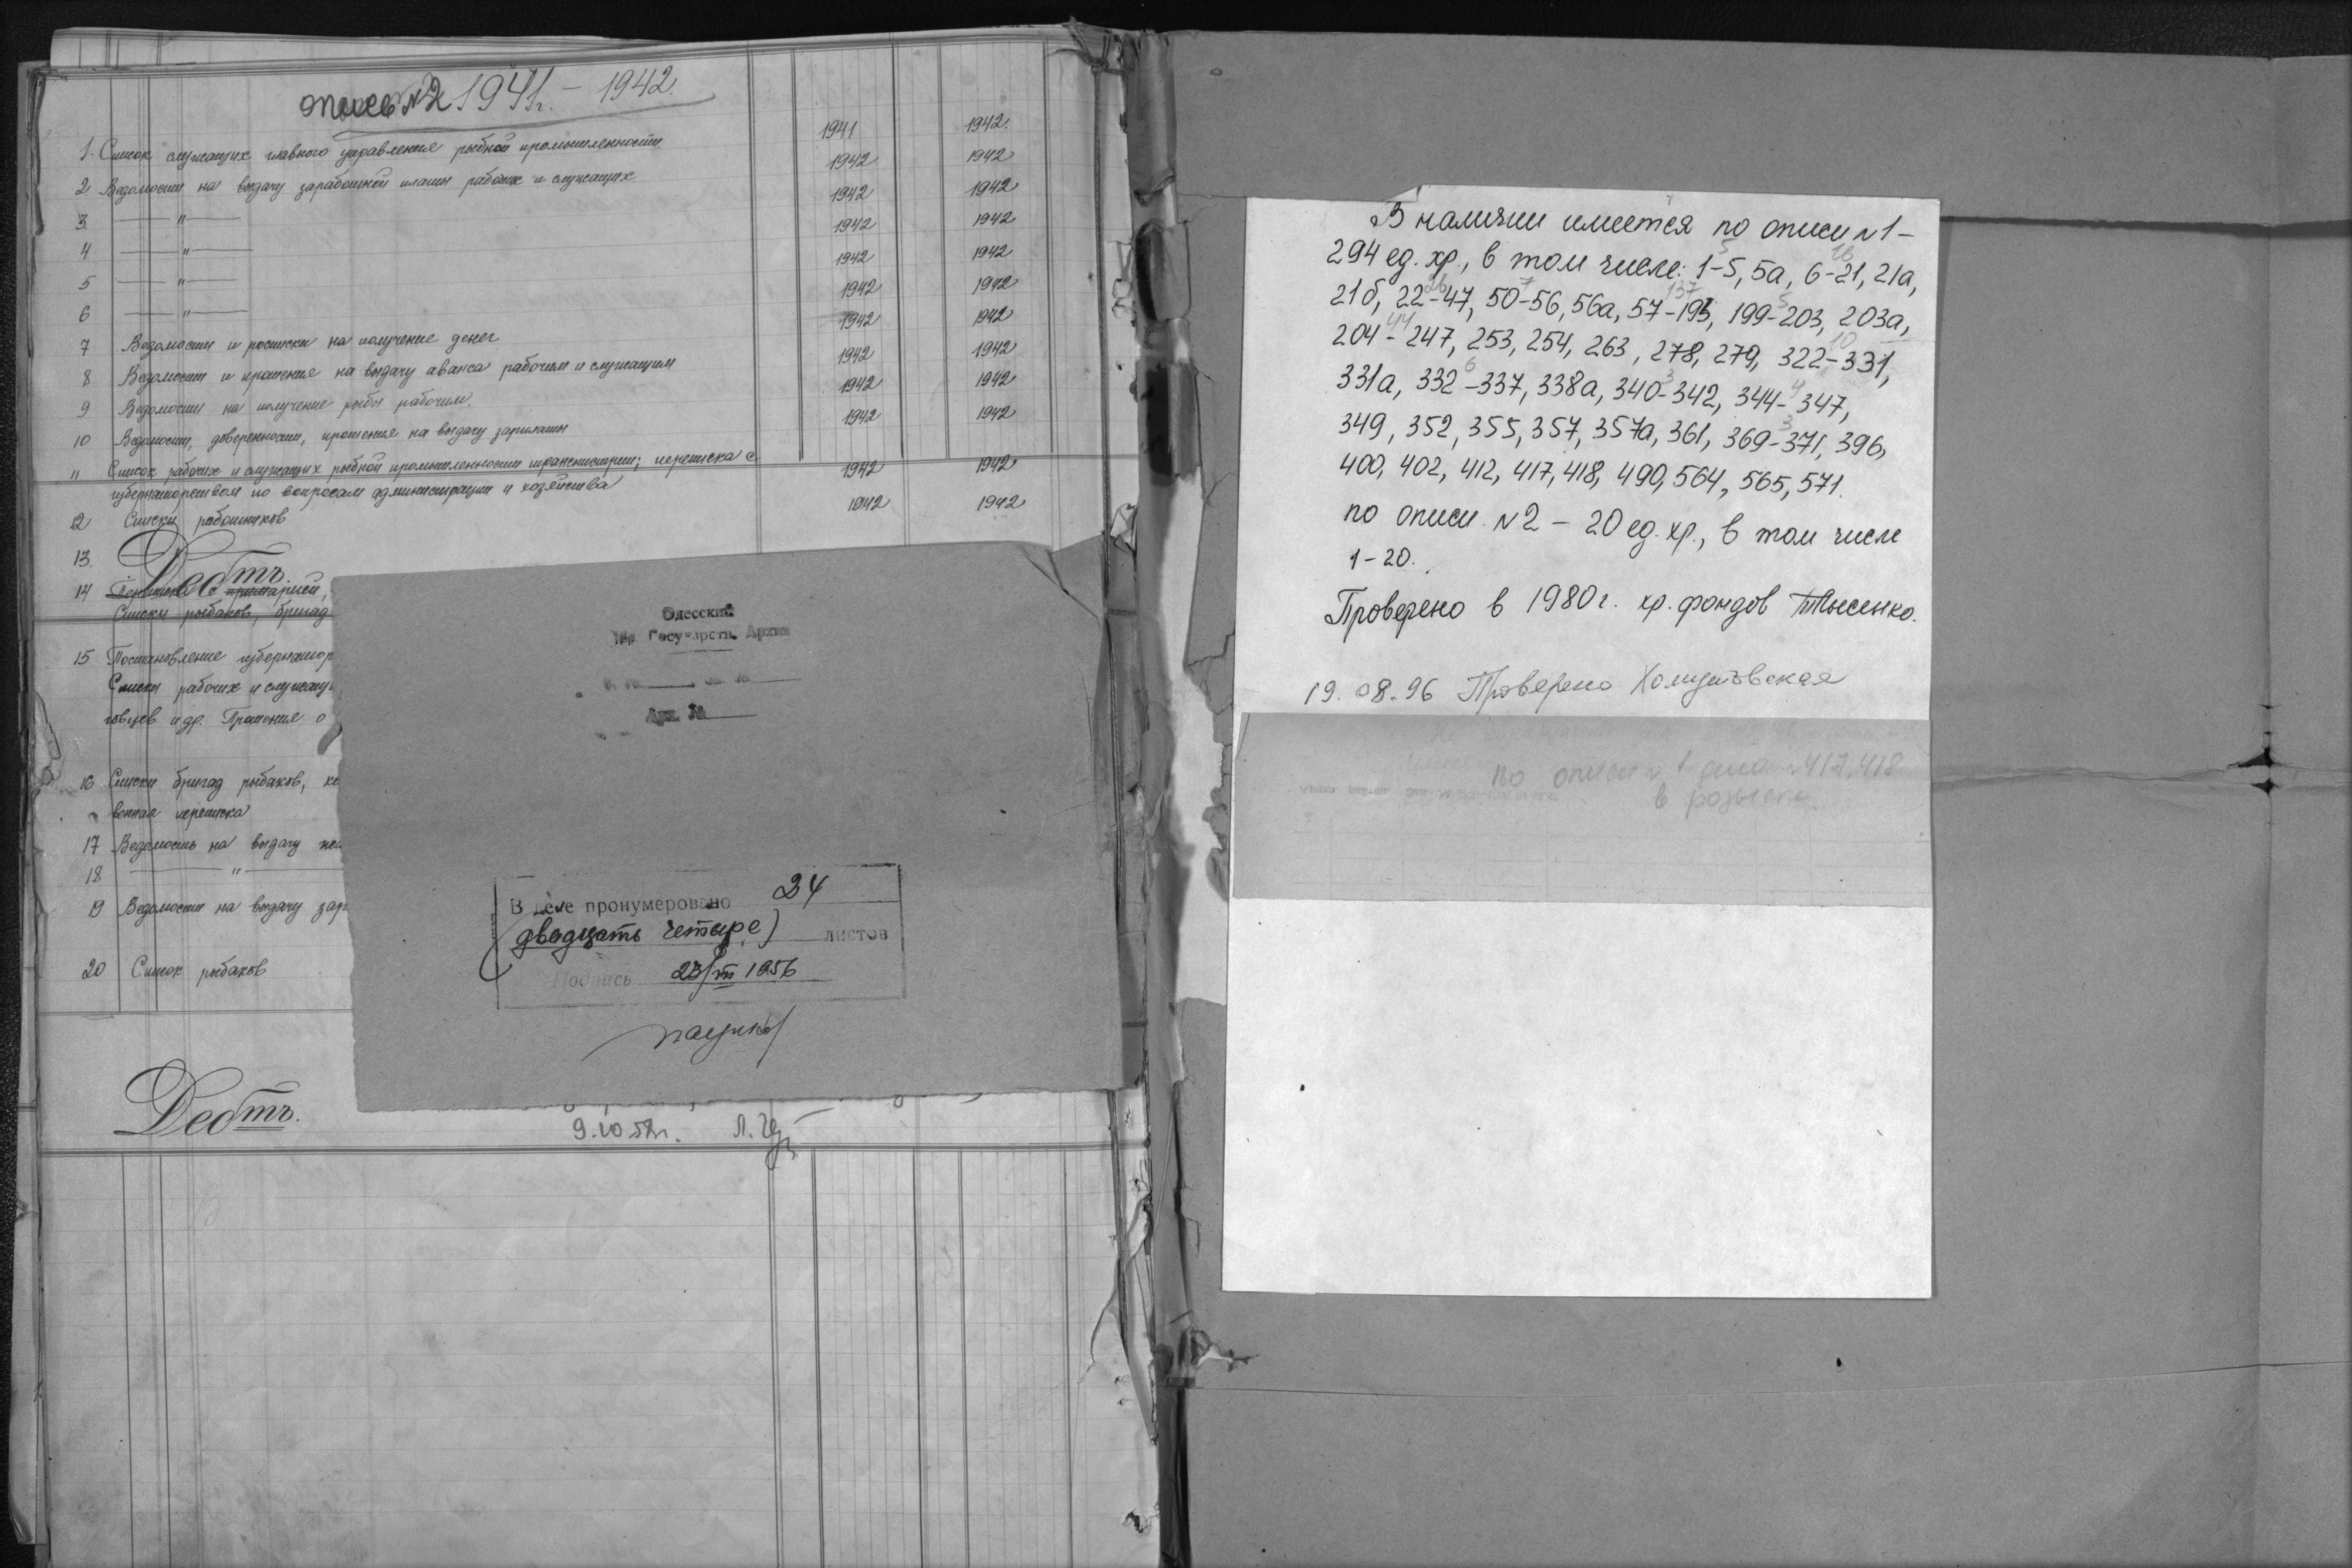 опись №2 1941г. – 1942.
1. Список служащих главного управления рыбной промышленности. 1941 1942.
2 Ведомости на выдачу заработной платы рабочих и служащих. 1942 1942
3. — " — 1942 1942
4 — " — 1942 1942
5 — " — 1942 1942
6 — " — 1942 1942
7 Ведомости и росписки на получение денег 1942 1942
8 Ведомости и прошения на выдачу аванса рабочим и служащим 1942 1942
9 Ведомости на получение рыбы рабочим. 1942 1942
10 Ведомости, доверенности, прошения на выдачу зарплаты 1942 1942
11 Список рабочих и служащих рыбной промышленности транснистрии; переписка с
губернаторством по вопросам администрации и хозяйства 1942 1942
12 Списки работников 1942 1942
13.
14
Списки рыбаков, бригад
15 Постановление губернатор
Списки рабочих и служащ
ловцев и др. Прошения о
16 Списки бригад рыбаков, хо
венная переписка
17 Ведомость на выдачу
18 — " —
19 Ведомости на выдачу зар
20 Список рыбаков
Одесский
Государств. Архив
Арх. №
В деле пронумеровано 24
(двадцать четыре) листов
Подпись 23/III 1956
9.10
В наличии имеется по описи №1 –
294 ед. хр., в том числе: 1-5, 5а, 6-21, 21а,
21б, 22-47, 50-56, 56а, 57-193, 199-203, 203а,
204-247, 253, 254, 263, 278, 279, 322-331,
331а, 332-337, 338а, 340-342, 344-347,
349, 352, 355, 357, 357а, 361, 369-371, 396,
400, 402, 412, 417, 418, 490, 564, 565, 571.
по описи №2 – 20 ед. хр., в том числе
1-20.
Проверено в 1980г. хр. фондов Тысенко.
19.08.96 Проверено
по описи №1 дела №417, 418
в розыске